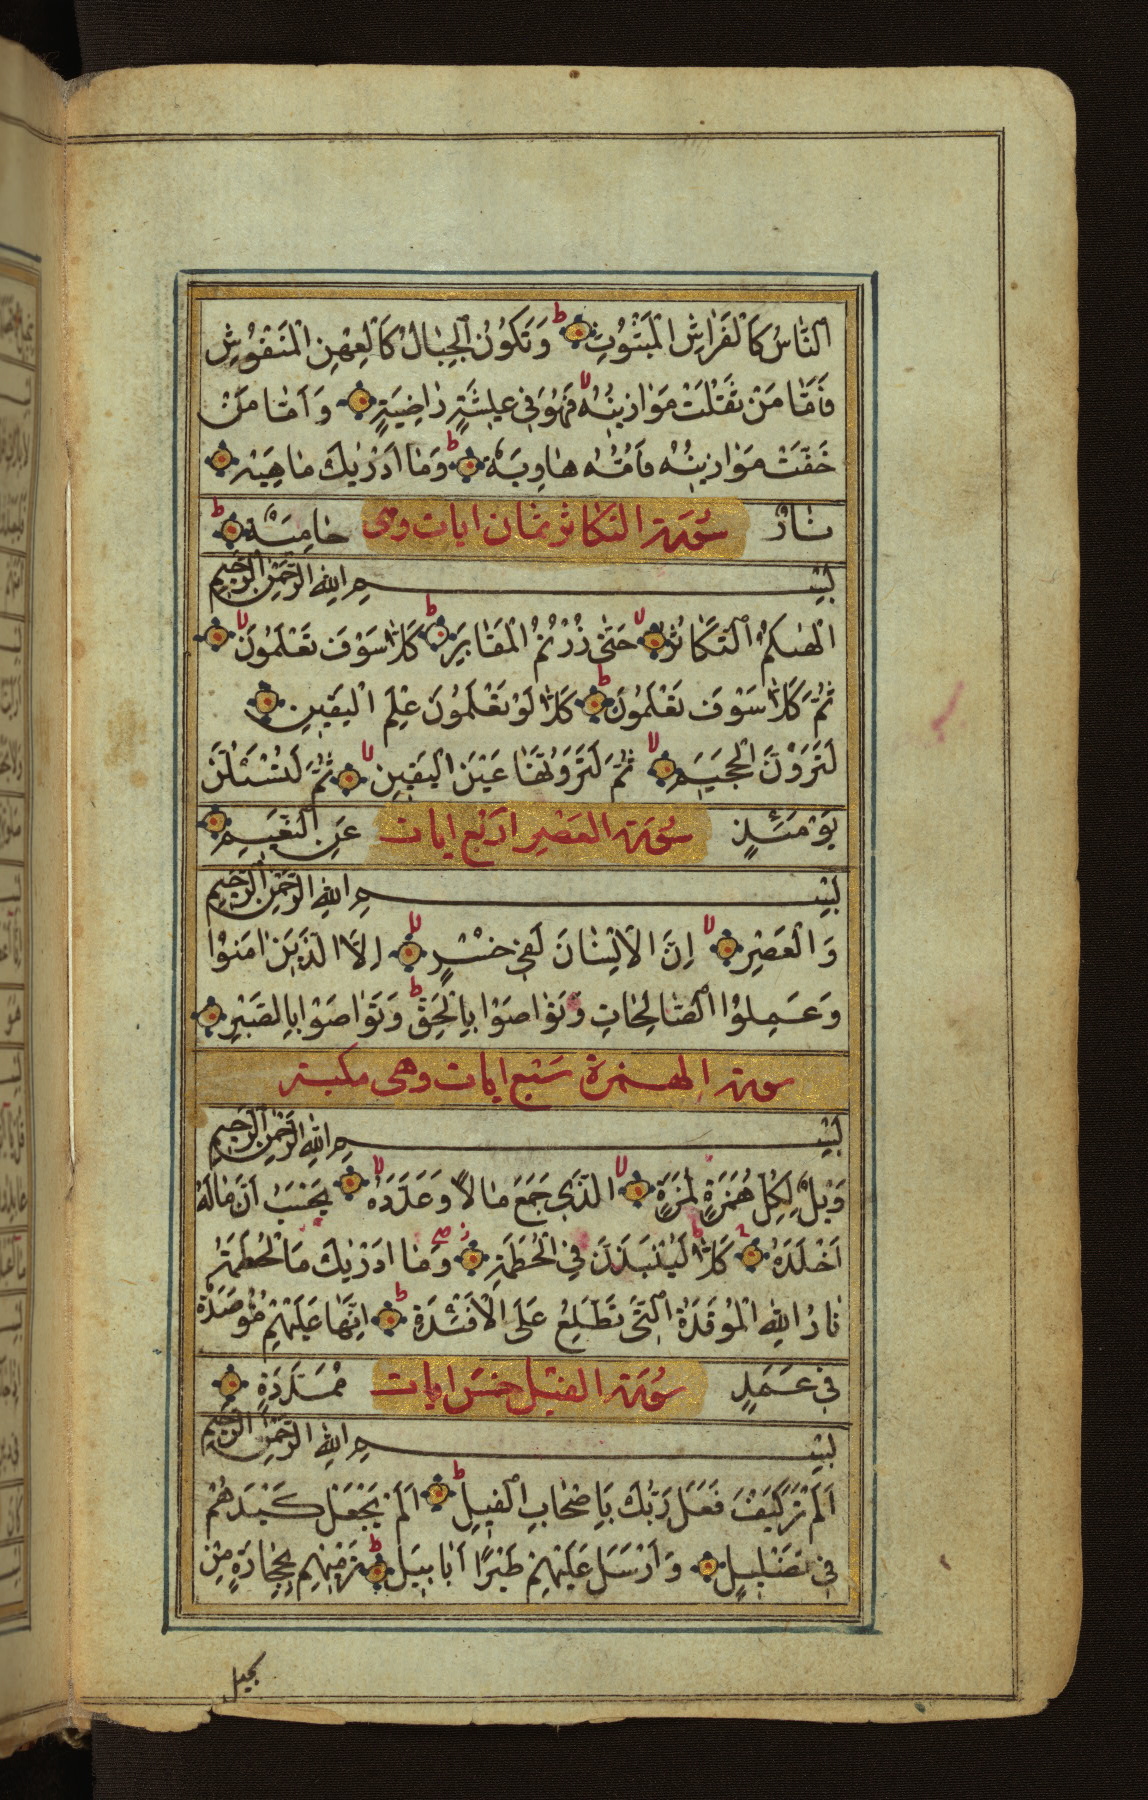 النَّاسُ كَالْفَرَاشِ الْمَبْثُوثِ ط وَتَكُونُ الْجِبَالُ كَالْعِهْنِ الْمَنْفُوشِ
فَأَمَّا مَنْ ثَقُلَتْ مَوَازِينُهُ لا فَهُوَ فِي عِيشَةٍ رَاضِيَةٍ وَأَمَّا مَنْ
خَفَّتْ مَوَازِينُهُ فَأُمُّهُ هَاوِيَةٌ ط وَمَا أَدْرٰيكَ مَاهِيَهْ
نَارٌ سورة التكاثر ثمان ايات وهى حَامِيَةٌ ط
بِسْمِ اللهِ الرَّحْمٰنِ الرَّحِيمِ
اَلْهٰىكُمُ التَّكَاثُرُ لا حَتّٰى زُرْتُمُ الْمَقَابِرَ ط كَلَّا سَوْفَ تَعْلَمُونَ لا
ثُمَّ كَلَّا سَوْفَ تَعْلَمُونَ ط كَلَّا لَوْ تَعْلَمُونَ عِلْمَ الْيَقِينِ
لَتَرَوُنَّ الْجَحِيمَ لا ثُمَّ لَتَرَوُنَّهَا عَيْنَ الْيَقِينِ لا ثُمَّ لَتُسْئَلُنَّ
يَوْمَئِذٍ سورة العصر اربع ايات عَنِ النَّعِيمِ
بِسْمِ اللهِ الرَّحْمٰنِ الرَّحِيمِ
وَالْعَصْرِ لا اِنَّ الْاِنْسَانَ لَفِي خُسْرٍ لا اِلَّا الَّذِينَ اٰمَنُوا
وَعَمِلُوا الصَّالِحَاتِ وَتَوَاصَوْا بِالْحَقِّ ط وَتَوَاصَوْا بِالصَّبْرِ
سورة الهمزة سبع ايات وهى مكية
بِسْمِ اللهِ الرَّحْمٰنِ الرَّحِيمِ
وَيْلٌ لِكُلِّ هُمَزَةٍ لُمَزَةٍ لا الَّذِي جَمَعَ مَالًا وَعَدَّدَهُ لا يَحْسَبُ اَنَّ مَالَهُ
اَخْلَدَهُ كَلَّا لَيُنْبَذَنَّ فِي الْحُطَمَةِ وَمَا اَدْرٰيكَ مَا الْحُطَمَةُ
نَارُ اللهِ الْمُوقَدَةُ الَّتِي تَطَّلِعُ عَلَى الْاَفْئِدَةِ ط اِنَّهَا عَلَيْهِمْ مُؤْصَدَةٌ
فِي عَمَدٍ سورة الفيل خمس ايات مُمَدَّدَةٍ
بِسْمِ اللهِ الرَّحْمٰنِ الرَّحِيمِ
اَلَمْ تَرَ كَيْفَ فَعَلَ رَبُّكَ بِاَصْحَابِ الْفِيلِ ط اَلَمْ يَجْعَلْ كَيْدَهُمْ
فِي تَضْلِيلٍ وَاَرْسَلَ عَلَيْهِمْ طَيْرًا اَبَابِيلَ ط تَرْمِيهِمْ بِحِجَارَةٍ مِنْ